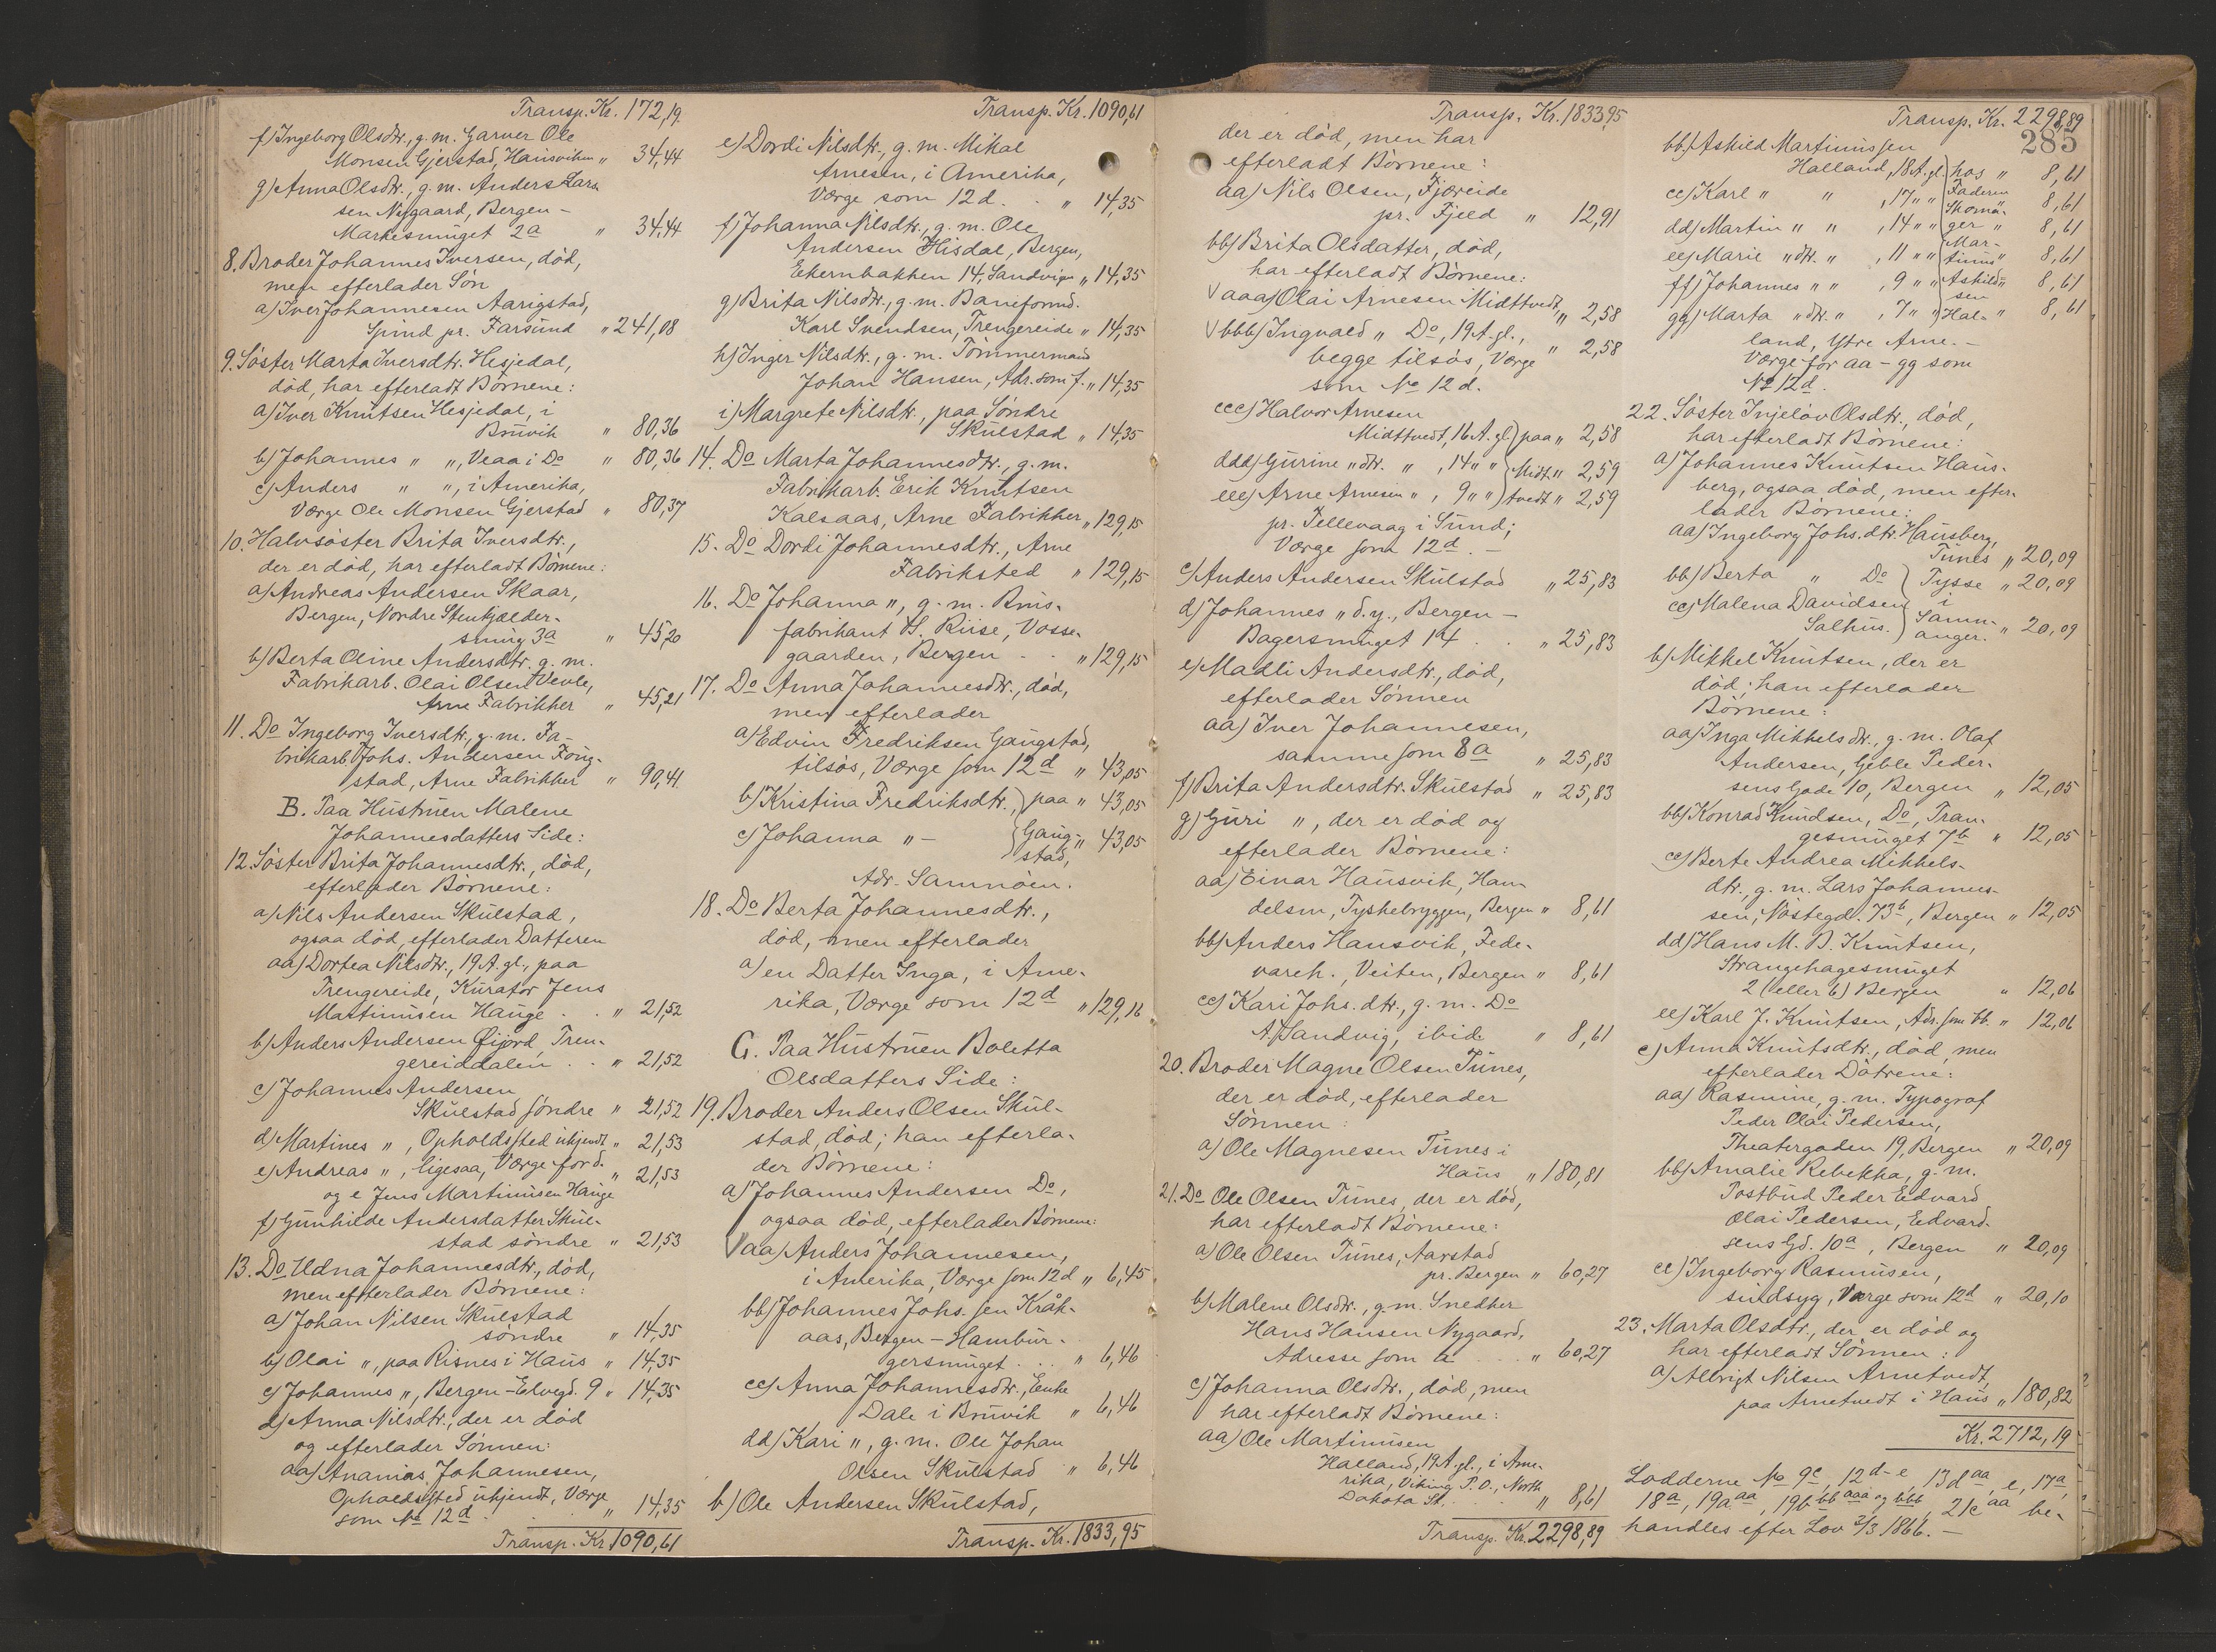 Transp. Kr. 172,19.
f) Ingeborg Olsdtr., g. m. Garver Ole
Monsen Gjerstad, Hausviken „ 34,44
g) Anna Olsdtr., g. m. Anders Lars-
sen Nygaard, Bergen –
Markesmuget 2a „ 34,44
8. Broder Johannes Iversen, död,
men efterlader Sön
a) Iver Johannesen Aarigstad,
Spind pr. Farsund „ 241,08
9. Söster Marta Iversdtr. Hesjedal,
död, har efterladt Börnene:
a) Iver Knutsen Hesjedal, i
Bruvik „ 80,36
b) Johannes „ „, Veaa i Do „ 80,36
c) Anders „ „, i Amerika,
Værge Ole Monsen Gjerstad „ 80,37
10. Halvsöster Brita Iversdtr.,
der er död, har efterladt Börnene:
a) Andreas Andersen Skaar,
Bergen, Nordre Stenkjælder-
smug 3a „ 45,20
b) Berta Oline Andersdtr. g. m.
Fabrikarb. Olai Olsen Vevle,
Arne Fabrikker „ 45,21
11. Do Ingeborg Iversdtr., g. m. Fa-
brikarb. Johs. Andersen Foug-
stad, Arne Fabrikker „ 90,41.
B. Paa Hustruen Malene
Johannesdatters Side:
12. Söster Brita Johannesdtr., död,
efterlader Börnene:
a) Nils Andersen Skulstad,
ogsaa död, efterlader Datteren
aa) Dortea Nilsdtr., 19 A. gl., paa
Trengereide, Kurator Jens
Martinusen Hauge . . „ 21,52
b) Anders Andersen Öijord, Tren-
gereiddalen . . „ 21,52
c) Johannes Andersen
Skulstad söndre „ 21,52
d) Martines „, Opholdssted ukjendt „ 21,53
e) Andreas „, ligesaa, Værge for d. „ 21,53
og e Jens Martinusen Hauge
f) Gunhilde Andersdatter Skul-
stad söndre „ 21,53
13. Do Udna Johannesdtr., död,
men efterlader Börnene:
a) Johan Nilsen Skulstad
söndre „ 14,35
b) Olai „, paa Risnes i Haus „ 14,35
c) Johannes „, Bergen – Elvegd. 9 „ 14,35
d) Anna Nilsdtr., der er död
og efterlader Sönnen:
aa) Ananias Johannesen,
Opholdssted ukjendt, Værge
som No 12d . „ 14,35
Transp. Kr 1090,61
Transp. Kr. 1090,61
e) Dordi Nilsdtr., g. m. Mikal
Arnesen, i Amerika,
Værge som 12 d. . „ 14,35
f) Johanna Nilsdtr., g. m. Ole
Andersen Hisdal, Bergen,
Ekernbakken 14, Sandviken „ 14,35
g) Brita Nilsdtr., g. m. Baneformd.
Karl Svendsen, Trengereide „ 14,35
h) Inger Nilsdtr., g. m. Tömmermand
Johan Hansen, Adr. som f. „ 14,35
i) Margrete Nilsdtr., paa Söndre
Skulstad „ 14,35
14. Do Marta Johannesdtr., g. m.
Fabrikarb. Erik Knutsen
Kalsaas, Arne Fabrikker „ 129,15
15. Do Dordi Johannesdtr., Arne
Fabriksted „ 129,15
16. Do Johanna „, g. m. Brus-
fabrikant H. Riise, Vosse-
gaarden, Bergen . . „ 129,15
17. Do Anna Johannesdtr., död,
men efterlader
a) Edvin Fredriksen Gaugstad,
tilsös, Værge som 12 d „ 43,05
b) Kristina Fredriksdtr., } paa „ 43,05
c) Johanna „ – } Gaug- „ 43,05
stad,
Adr. Samnöen.
18. Do Berta Johannesdtr.,
död, men efterlader
a) en Datter Inga, i Ame-
rika, Værge som 12 d „ 129,16
C. Paa Hustruen Boletta
Olsdatters Side:
19. Broder Anders Olsen Skul-
stad, död; han efterla-
der Börnene:
a) Johannes Andersen Do,
ogsaa död, efterlader Börnene:
√aa) Anders Johannesen,
i Amerika, Værge som 12 d „ 6,45
bb) Johannes Johs. sen Kråk-
aas, Bergen – Hambur-
gersmuget . . . „ 6,46
cc) Anna Johannesdtr., Enke
Dale i Bruvik „ 6,46
dd) Kari „, g. m. Ole Johan
Olsen Skulstad „ 6,46
b) Ole Andersen Skulstad,
Transp. Kr. 1833,95
Transp. Kr. 1833,95
der er död, men har
efterladt Börnene:
aa) Nils Olsen, Fjæreide
pr. Fjeld „ 12,91
bb) Brita Olsdatter, död,
har efterladt Börnene:
√aaa) Olai Arnesen Midttvedt, „ 2,58
√bbb) Ingvald „ Do, 19 A. gl., „ 2,58
begge tilsös, Værge
som No 12 d.
ccc) Halvor Arnesen
Midttvedt, 16 A. gl. } paa „ 2,58
ddd) Gurine „ dtr. „ , 14 „ „ } Midt- „ 2,59
eee) Arne Arnesen „ , 9 „ „ } tvedt „ 2,59
pr. Tellevaag i Sund;
Værge som 12 d. –
c) Anders Andersen Skulstad „ 25,83
d) Johannes „ d. y., Bergen –
Bagersmuget 14 . . „ 25,83
e) Madli Andersdtr., död,
efterlader Sönnen
aa) Iver Johannesen,
samme som 8a „ 25,83
f) Brita Andersdtr. Skulstad „ 25,83
g) Guri „, der er död og
efterlader Börnene:
aa) Einar Hausvik, Han-
delsm, Tyskebryggen, Bergen „ 8,61
bb) Anders Hausvik, Fede-
vareh., Veiten, Bergen „ 8,61
cc) Kari Johs. dtr., g. m. Do
A. Sandvig, ibid. „ 8,61
20. Broder Magne Olsen Tunes,
der er död, efterlader
Sönnen:
a) Ole Magnesen Tunes i
Haus „ 180,81
21. Do Ole Olsen Tunes, der er död,
har efterladt Börnene:
a) Ole Olsen Tunes, Aarstad
pr. Bergen „ 60,27
b) Malene Olsdtr., g. m. Snedker
Hans Hansen Nygaard,
Adresse som a . . . „ 60,27
c) Johanna Olsdtr., död, men
har efterladt Börnene:
aa) Ole Martinusen
Halland, 19 A. gl., i Ame-
rika, Viking P. O., North
Dakota St. . . „ 8,61
Transp. Kr. 2298,89
Transp. Kr. 2298,89
285
bb) Askild Martinussen
Halland, 18 A. gl. } hos „ 8,61
cc) Karl „ „ , 17 „ „ } Faderen Skoma- „ 8,61
dd) Martin „ „ , 14 „ „ } ger „ 8,61
ee) Marie „ dtr. „ , 11 „ „ } Mar- tinus „ 8,61
ff) Johannes „ „ , 9 „ „ } Askild- „ 8,61
gg) Marta „ dtr. „ , 7 „ „ } sen Hal- „ 8,61
land, Ytre Arne. –
Værge for aa – gg som
No 12 d.
22. Söster Injeløv Olsdtr., död,
har efterladt Börnene:
a) Johannes Knutsen Haus-
berg, ogsaa död, men efter-
lader Börnene:
aa) Ingeborg Johs. dtr. Hausberg,
Tunes „ 20,09
bb) Berta „ Do } Tysse „ 20,09
cc) Malena Davidsen } i
Salhus. } Samn- anger. „ 20,09
b) Mikkel Knutsen, der er
död; han efterlader
Börnene:
aa) Inga Mikkelsdtr., g. m. Olaf
Andersen, Geble Peder-
sens Gade 10, Bergen „ 12,05
bb) Konrad Knudsen, Do, Tran-
gesmuget 7b „ 12,05
cc) Berte Andrea Mikkels-
dtr., g. m. Lars Johannes-
sen, Nöstegd. 73b, Bergen „ 12,05
dd) Hans M. B. Knutsen,
Strangehagesmuget
2 (eller 6) Bergen „ 12,06
ee) Karl J. Knutsen, Adr. som bb. „ 12,06
c) Anna Knutsdtr., död, men
efterlader Dötrene:
aa) Rasmine, g. m. Typograf
Peder Olai Pedersen,
Theatergaden 19, Bergen „ 20,09
bb) Amalie Rebekka, g. m.
Postbud Peder Edvard
Olai Pedersen, Edvard-
sens Gd. 10a, Bergen „ 20,09
cc) Ingeborg Rasmusen,
sindsyg, Værge som 12 d „ 20,10
23. Marta Olsdtr., der er död og
har efterladt Sönnen:
a) Albrigt Nilsen Arnetvedt,
paa Arnetvedt i Haus „ 180,82
Kr. 2712,19
Lodderne No 9c, 12 d-e, 13 d aa, e, 17a,
18a, 19a aa, 19b bb aaa og bbb, 21c aa be-
handles efter Lov 3/3 1866. –